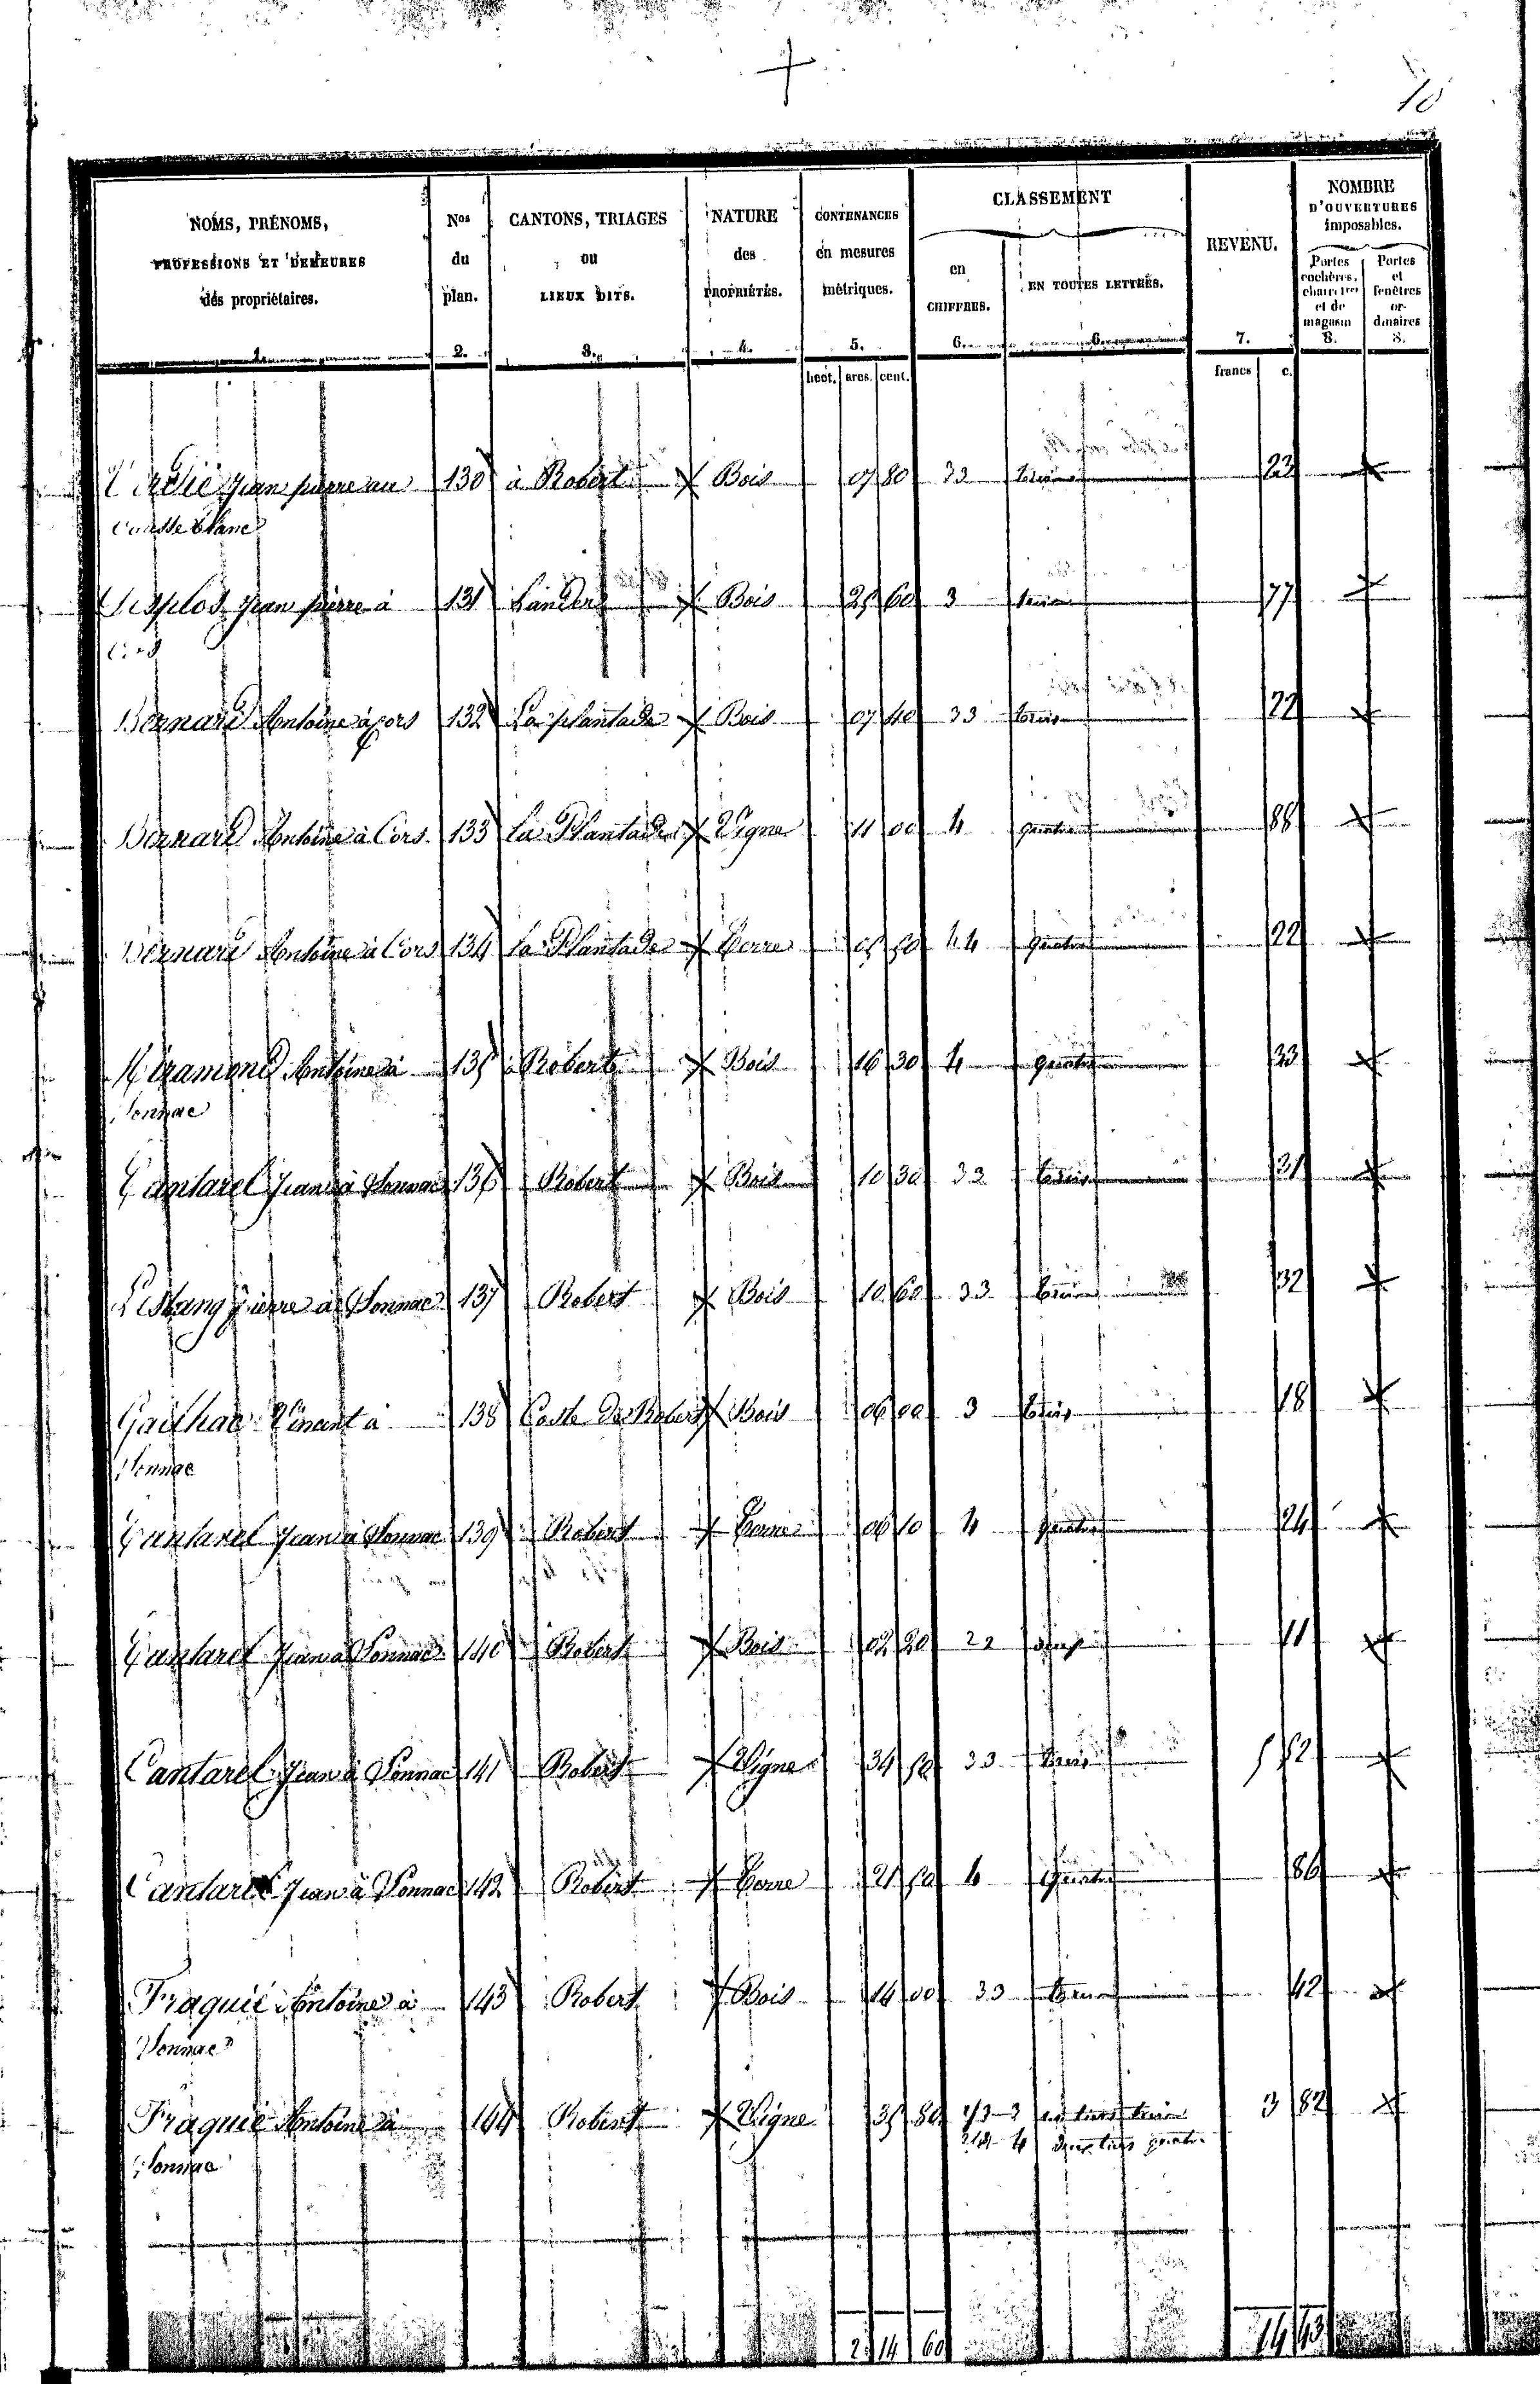 10
NOMS, PRÉNOMS, PROFESSIONS ET DEMEURES des propriétaires. 1.
Nos du plan. 2.
CANTONS, TRIAGES OU LIEUX DITS. 3.
NATURE des PROPRIÉTÉS. 4.
CONTENANCES en mesures métriques. 5.
CLASSEMENT
en CHIFFRES. 6.
EN TOUTES LETTRES. 6.
REVENU. 7.
NOMBRE D'OUVERTURES imposables.
Portes cochères, charretres et de magasin 8.
Portes et fenêtres ordinaires 8.
hect. ares. cent. francs c.
Jean pierre au 130 à Robert Bois 07 80 33 trois 23
Causse blanc
Jean pierre à 131 Bois 25 60 3 trois 77
Bernard Antoine à Cors 132 La plantade Bois 07 40 33 trois 22
Bernard Antoine à Cors 133 La Plantade Vigne 11 00 4 quatre 88
Bernard Antoine à Cors 134 La Plantade Terre 05 50 44 quatre 22
Miramond Antoine à 135 à Robert Bois 16 30 4 quatre 33
Vonnac
Cantarel Jean à Vonnac 136 Robert Bois 10 30 33 trois 31
Lestang Pierre à Vonnac 137 Robert Bois 10 60 33 trois 32
Gailhac à 138 Coste de Robert Bois 06 00 3 trois 18
Vonnac
Cantarel Jean à Vonnac 139 Robert Terre 06 10 4 quatre 24
Cantarel Jean à Vonnac 140 Robert Bois 02 20 22 deux 11
Cantarel Jean à Vonnac 141 Robert Vigne 34 50 33 trois 5 52
Cantarel Jean à Vonnac 142 Robert Terre 21 50 4 quatre 86
Fraquié Antoine à 143 Robert Bois 14 00 33 trois 42
Vonnac
Fraquié Antoine à 144 Robert Vigne 35 80 1/3-3 un tiers trois 3 82
Vonnac 2/3-4 deux tiers quatre
2 14 60 14 43